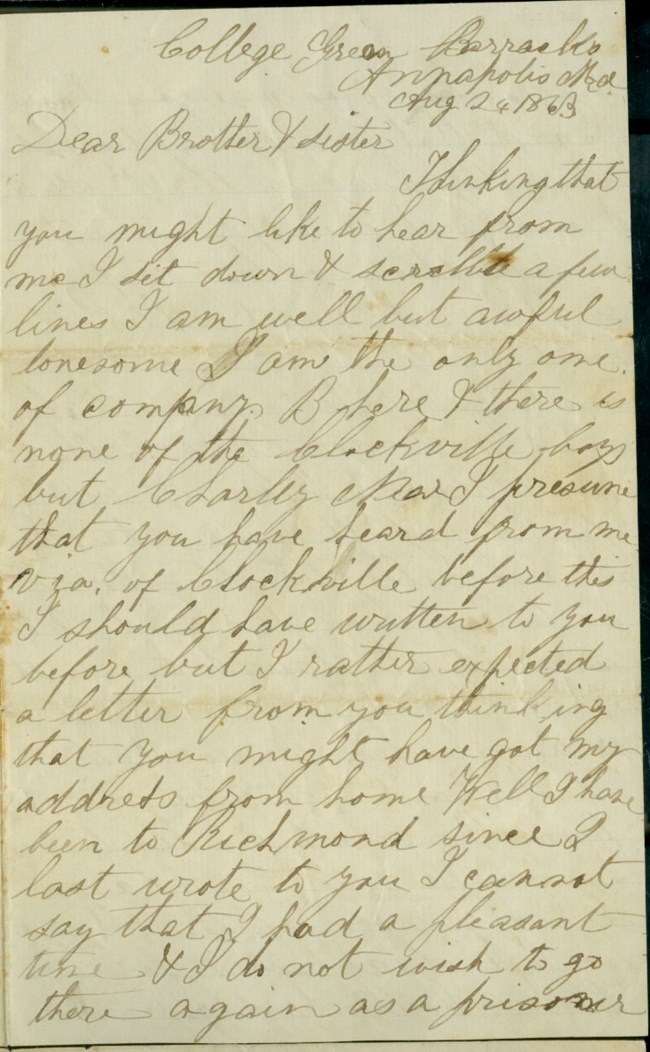 College Green Barracks
Annapolis Md.
Aug 24 1863
Dear Brother & Sister
Thinking that
you might like to hear from
me I sit down & scrabble a few
lines I am well but awful
lonesome I am the only one.
of company B here & there is
none of the Clockville boys
but Charley I presume
that you have heard from me
via. of Clockville before this
I should have written to you
before but I rather expected
a letter from you thinking
that you might have got my
address from home Well I have
been to Richmond since I
last wrote to you I cannot
say that I had a pleasant
time & I do not wish to go
there again as a prisoner